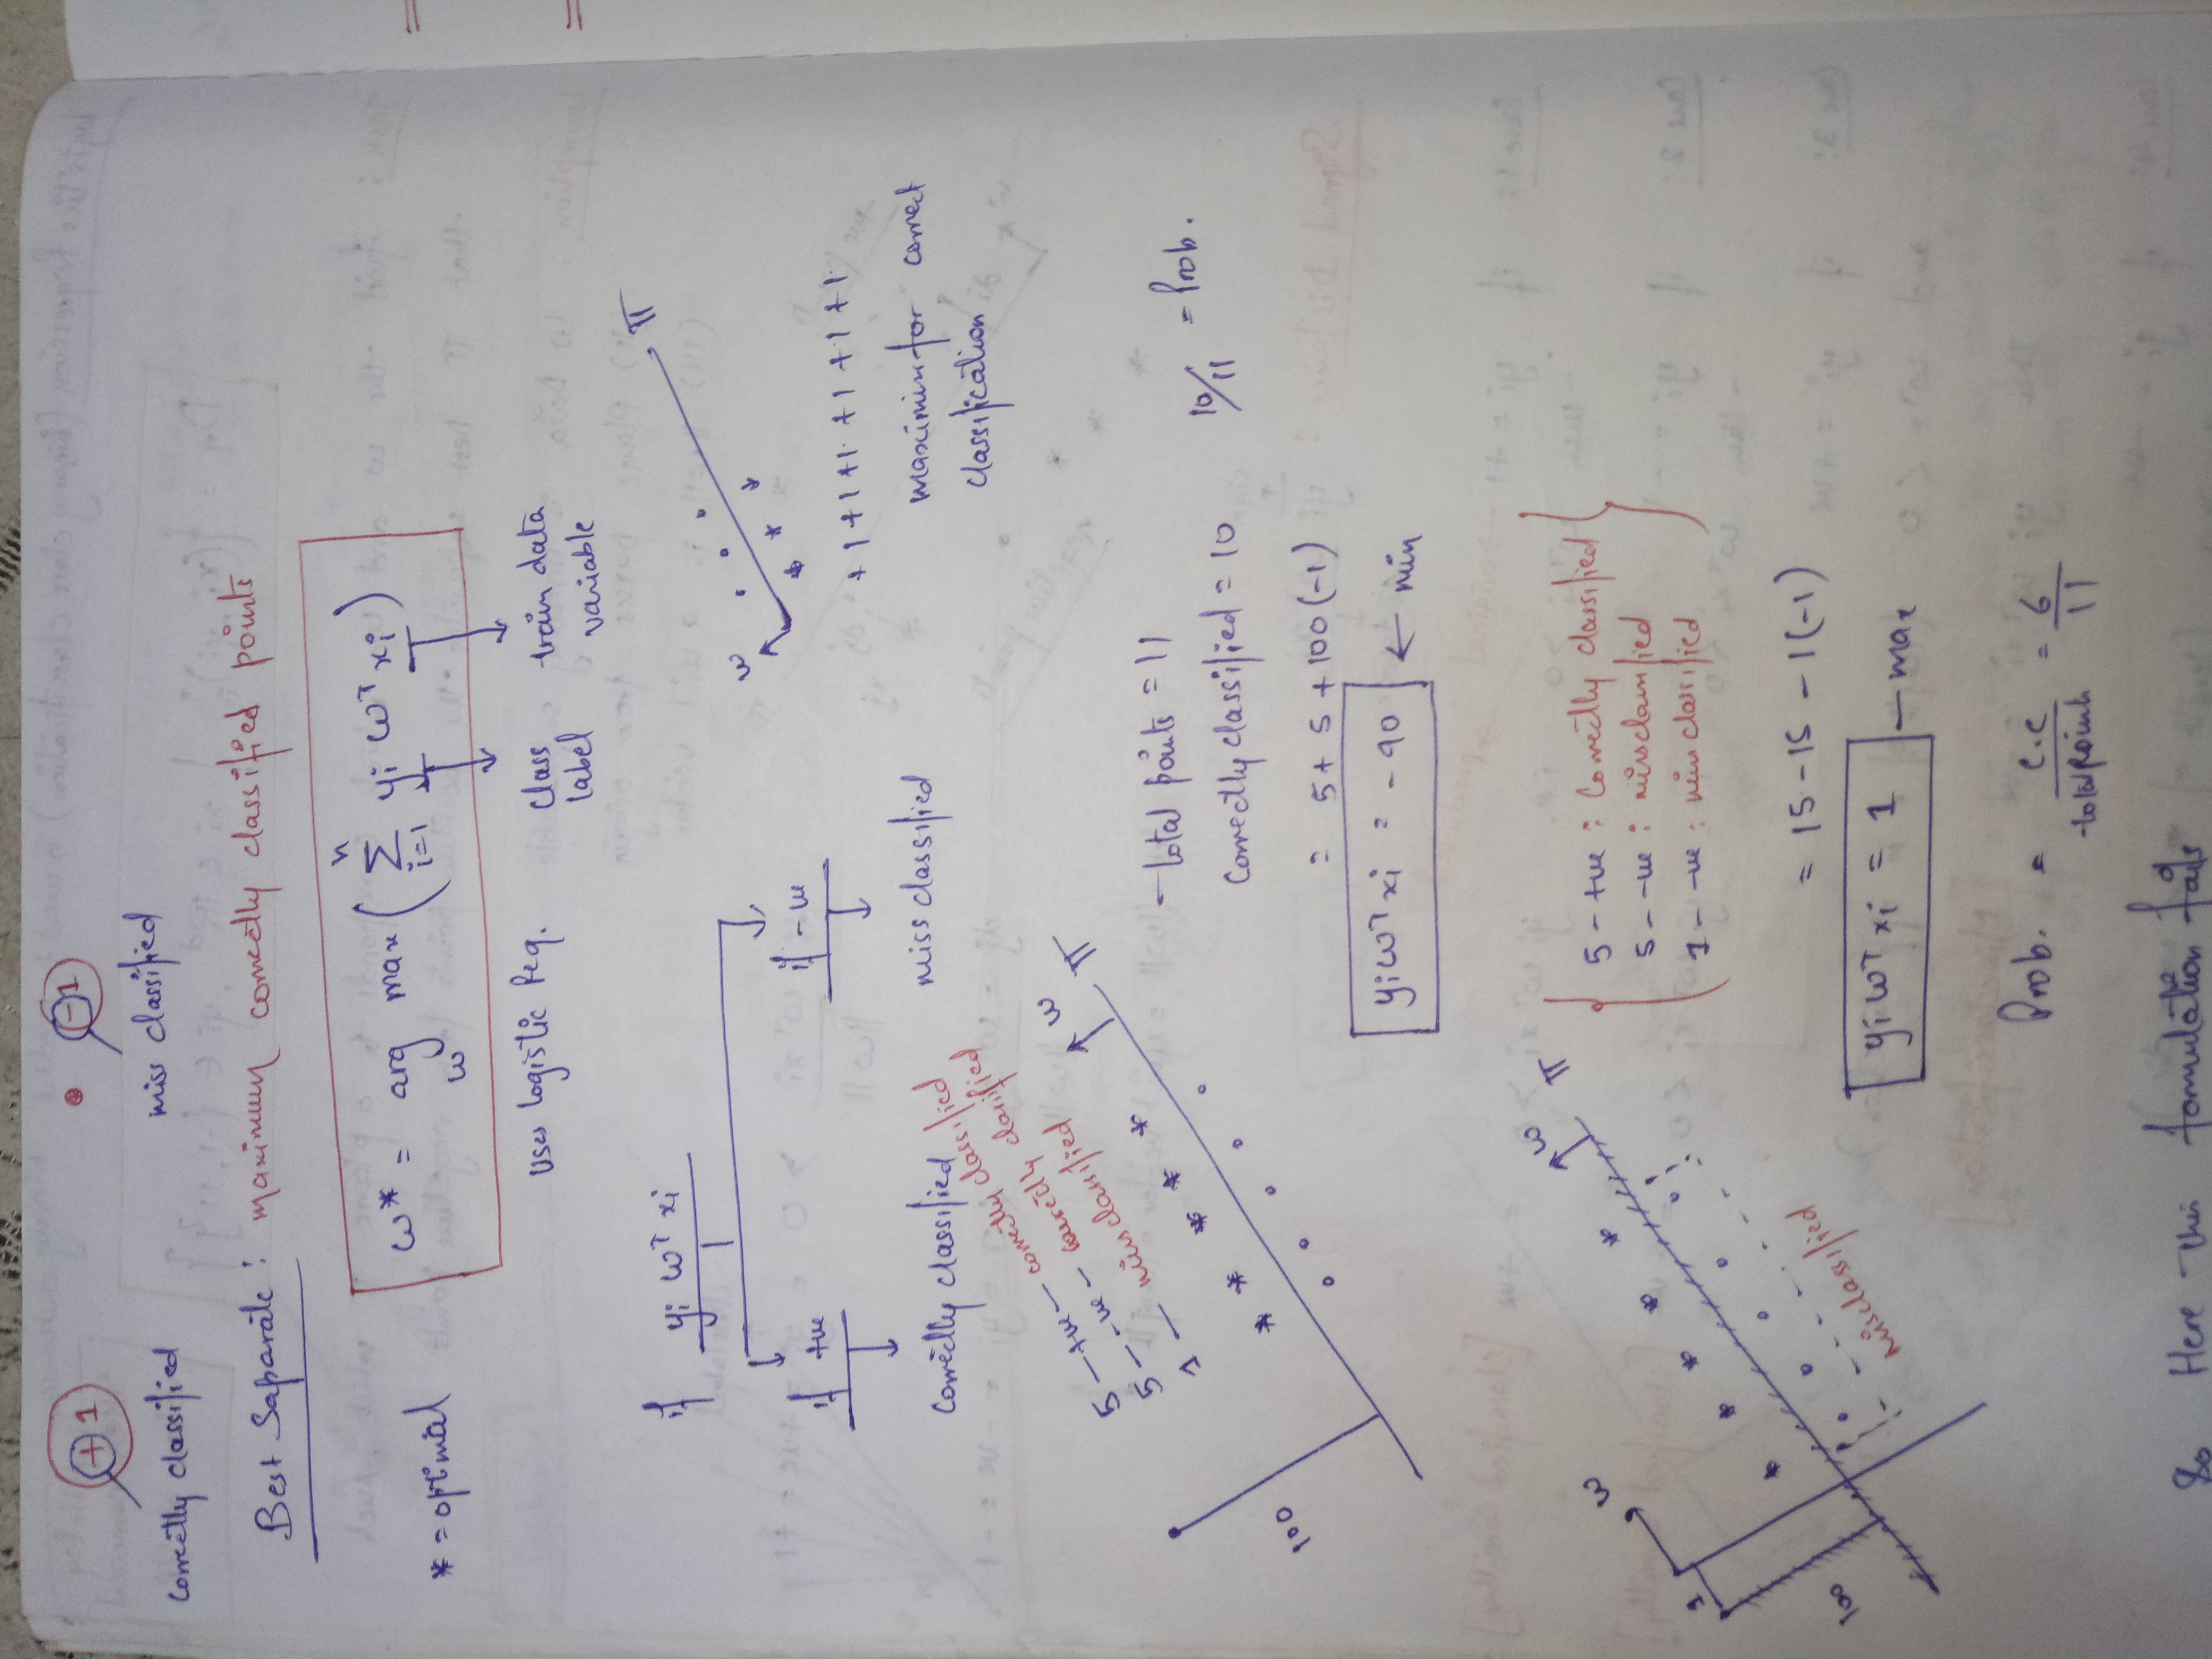 +1
-1
correctly classified
miss classified
Best Saparate : maximum correctly classified points
* = optimal
ω* = arg max ( Σ yi ωᵀ xi )
n
i=1
ω
uses logistic Reg.
class label
train data variable
if yi ωᵀ xi
if +ve
if -ve
Correctly classified
miss classified
π
ω
+1 +1 +1 +1 +1 +1
maximim for correct
classification
5 — +ve — correctly classified
5 — -ve — correctly classified
1 — miss classified
ω
π
100
total points = 11
Correctly classified = 10
10/11 = Prob.
= 5 + 5 + 100 (-1)
yi ωᵀ xi = -90 ← min
ω
π
ω
1
100
misclassified
5 - +ve : Correctly classified
5 - -ve : missclassified
1 - -ve : miss classified
= 15 - 15 - 1 (-1)
yi ωᵀ xi = 1 — max
Prob. = c.c / total points = 6 / 11
So Here this formulation fails